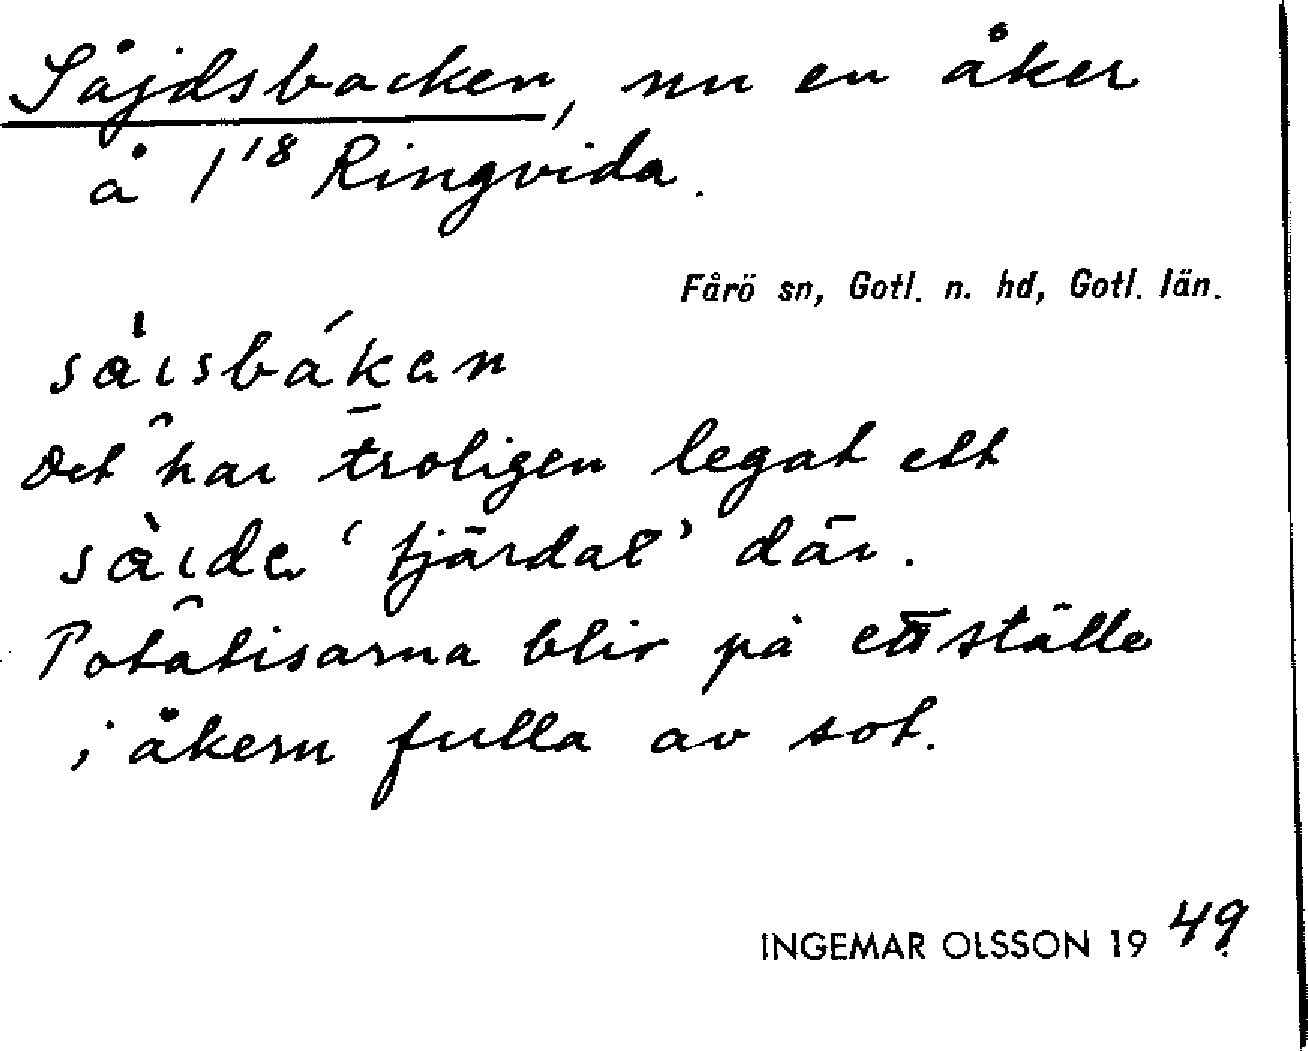 Såjdsbacken, nu en åker
å 1¹⁸ Ringvida.
Fårö sn, Gotl. n. hd, Gotl. län.
Det har troligen legat ett
'tjärdal' där.
Potatisarna blir på ett ställe
i åkern fulla av sot.
INGEMAR OLSSON 1949